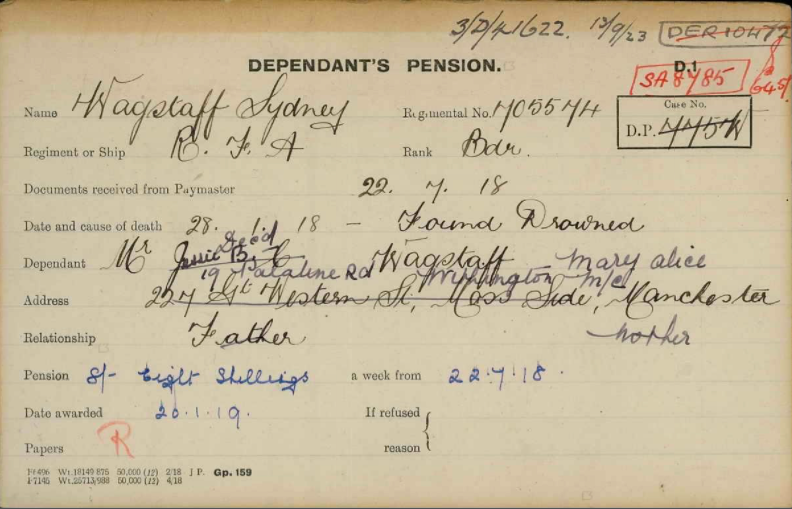 3/D/41622. 13/9/23 DER10477
DEPENDANT'S PENSION. D.1
SA8785
Name Wagstaff Sydney Regimental No. 705574 Case No.
D.P. 7757
Regiment or Ship R. F. A Rank Bdr.
Documents received from Paymaster 22. 7. 18
Date and cause of death 28. 1. 18 — Found Drowned
Dec'd
Dependant Mr Wagstaff Mary Alice
19 Palatine Rd Withington M/C
Address 227 Gt Western St, Moss Side, Manchester
Relationship Father Mother
Pension 8/- Eight Shillings a week from 22.7.18.
Date awarded 20.1.19. If refused
Papers R reason
Wt.18149 875 50,000 (12) 2/18 J P. Gp. 159
50,000 (12) 4/18